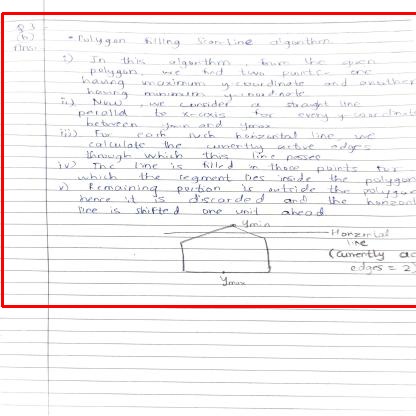 Q 3
(b)
Ans:
- Polygon filling Scan-line algorithm
i) In this algorithm, from the given
polygon, we find two points - one
having maximum y coordinate and another
having minimum y-coordinate
ii) Now, we consider a straight line
parallel to x-axis for every y-coordinate
between ymin and ymax
iii) For each such horizontal line, we
calculate the currently active edges
through which this line passes
iv) The line is filled in those points for
which the segment lies inside the polygon
v) Remaining portion is outside the polygon
hence it is discarded and the horizontal
line is shifted one unit ahead
ymin
Horizontal
line
(currently ac
edges = 2)
ymax